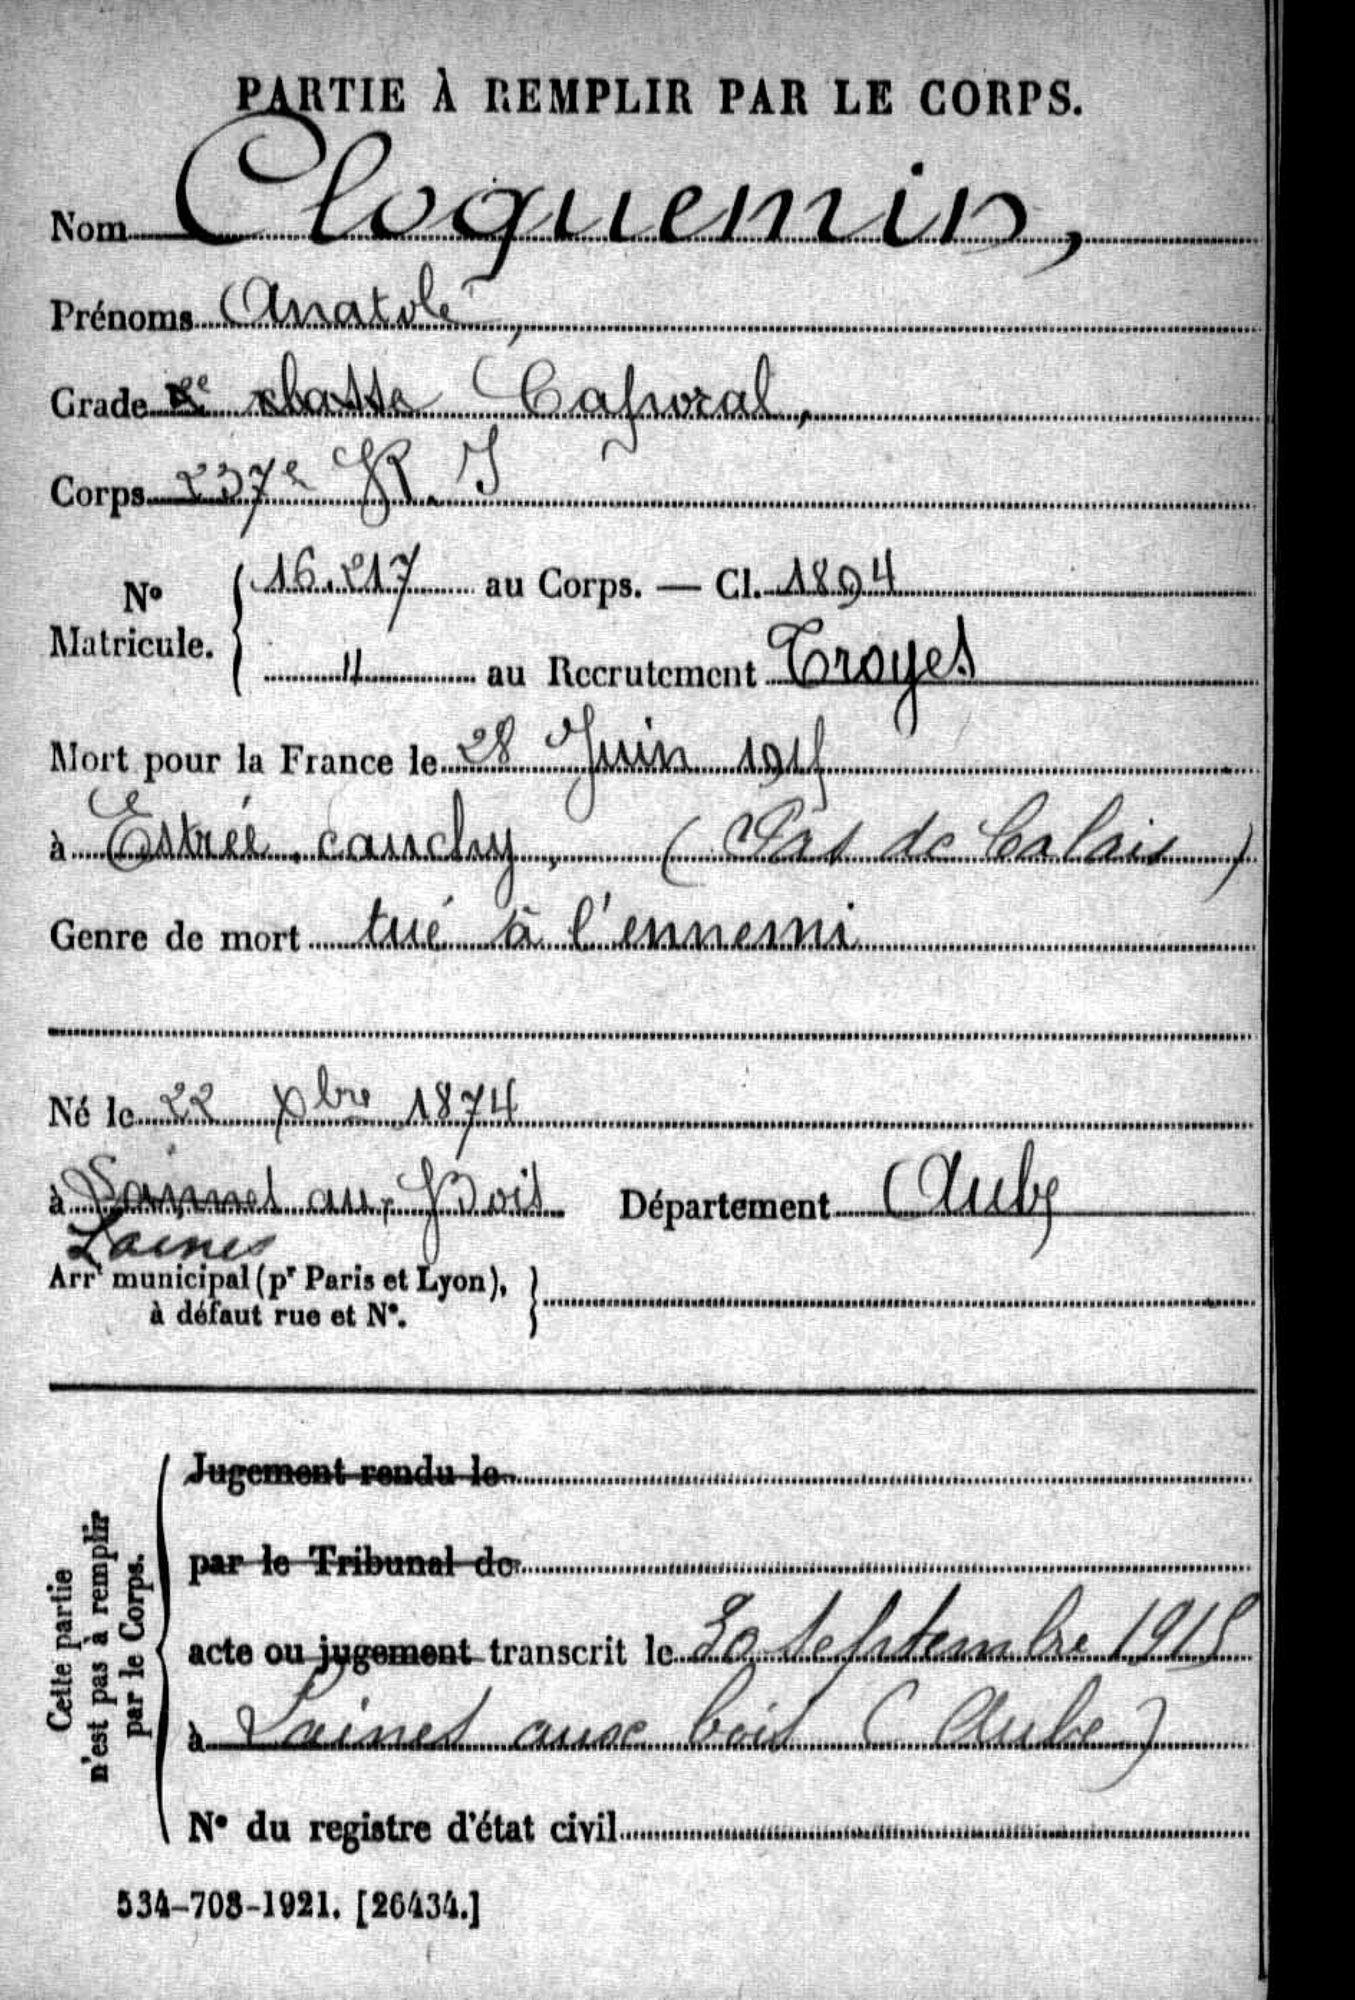 PARTIE À REMPLIR PAR LE CORPS.
Nom Cloquemin,
Prénoms Anatole,
Grade 2e classe Caporal,
Corps 237e R. I
No Matricule. 16.217 au Corps. — Cl. 1894
" au Recrutement Troyes
Mort pour la France le 28 Juin 1915
à Estrée. cauchy, (Pas de Calais)
Genre de mort tué à l'ennemi
Né le 22 Xbre 1874
à aux Bois Département Aube
Laines
Arrt municipal (pr Paris et Lyon),
à défaut rue et No.
Cette partie
n'est pas à remplir
par le Corps.
Jugement rendu le
par le Tribunal de
acte ou jugement transcrit le 30 septembre 1915
à Laines aux bois (Aube)
No du registre d'état civil
534-708-1921. [26434.]